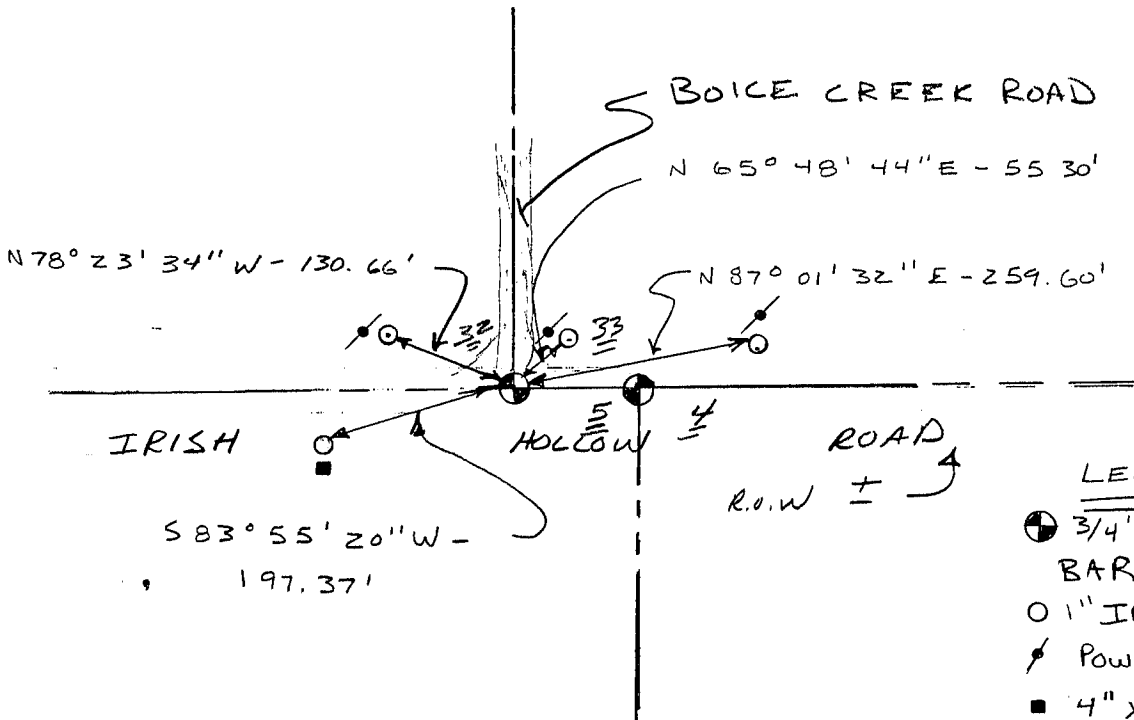 BOICE CREEK ROAD
N 65° 48' 44" E - 55 30'
N 78° 23' 34" W - 130.66'
N 87° 01' 32" E - 259.60'
32
33
5
4
IRISH HOLLOW ROAD
R.O.W ±
S 83° 55' 20" W -
197.37'
LE
3/4"
BAR
1" I
POW
4" X